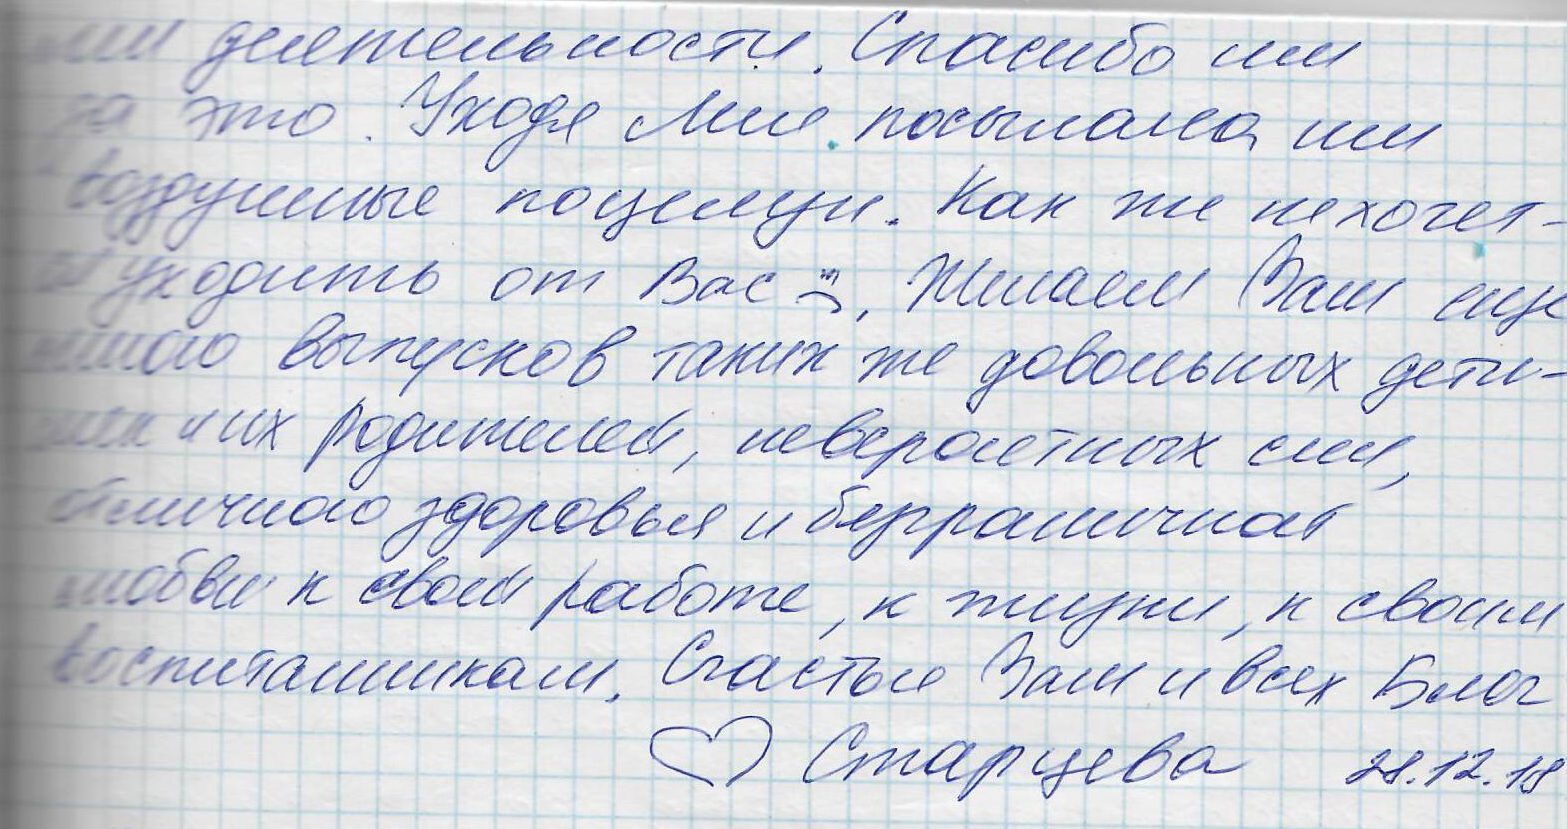 деятельности. Спасибо им
за это. Уходя Мия посылала им
воздушные поцелуи. Как же нехочет-
ся уходить от Вас. Желаем Вам еще
много выпусков таких же довольных дети-
шек и их родителей, невероятных сил,
отличного здоровья и безграничной
любви к своей работе, к жизни, к своим
воспитанникам. Счастья Вам и всех Благ
♡ Старцева 28.12.18